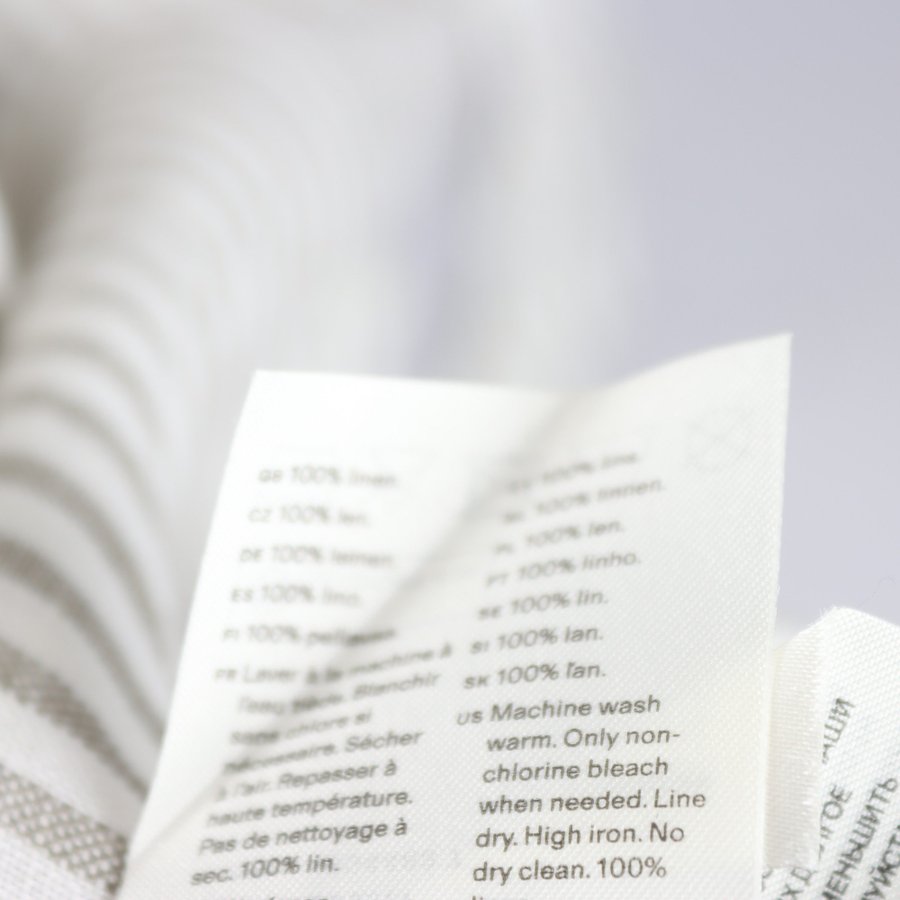 GB 100% linen.
CZ 100% len.
DE 100% leinen.
ES 100% lino.
FI 100% pellavaa.
FR Laver à la machine à
l'eau tiède. Blanchir
sans chlore si
nécessaire. Sécher
à l'air. Repasser à
haute température.
Pas de nettoyage à
sec. 100% lin.
100% lino.
100% linnen.
PL 100% len.
PT 100% linho.
SE 100% lin.
SI 100% lan.
SK 100% ľan.
US Machine wash
warm. Only non-
chlorine bleach
when needed. Line
dry. High iron. No
dry clean. 100%